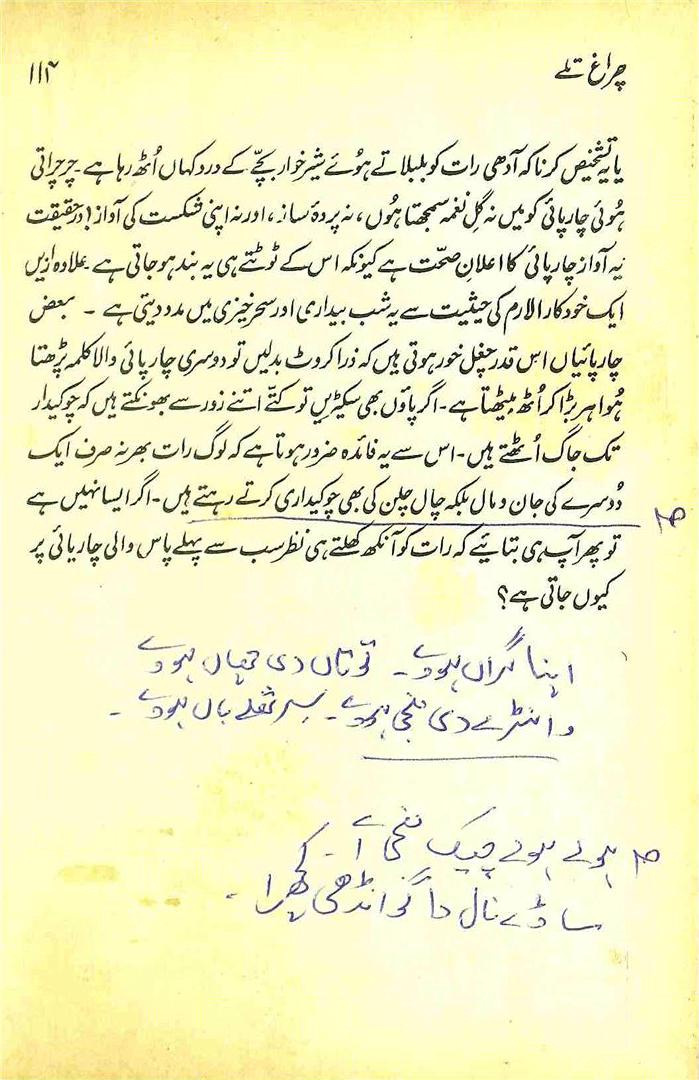 چراغ تلے
۱۱۴
یا یہ تشخیص کرنا کہ آدھی رات کو بلبلاتے ہوئے شیر خوار بچّے کے درد کہاں اُٹھ رہا ہے۔ چرچراتی
ہوئی چارپائی کو میں نہ گلِ نغمہ سمجھتا ہوں، نہ پردۂ ساز، اور نہ اپنی شکست کی آواز! درحقیقت
یہ آواز چارپائی کا اعلانِ صحّت ہے کیونکہ اس کے ٹوٹتے ہی یہ بند ہو جاتی ہے۔ علاوہ ازیں
ایک خودکار الارم کی حیثیت سے یہ شب بیداری اور سحر خیزی میں مدد دیتی ہے ۔ بعض
چارپائیاں اس قدر چغل خور ہوتی ہیں کہ ذرا کروٹ بدلیں تو دوسری چارپائی والا کلمہ پڑھتا
ہُوا ہڑبڑا کر اُٹھ بیٹھتا ہے۔ اگر پاؤں بھی سکیڑیں تو کتّے اتنے زور سے بھونکتے ہیں کہ چوکیدار
تک جاگ اُٹھتے ہیں۔ اس سے یہ فائدہ ضرور ہوتا ہے کہ لوگ رات بھر نہ صرف ایک
دُوسرے کی جان و مال بلکہ چال چلن کی بھی چوکیداری کرتے رہتے ہیں۔ اگر ایسا نہیں ہے
تو پھر آپ ہی بتائیے کہ رات کو آنکھ کھلتے ہی نظر سب سے پہلے پاس والی چارپائی پر
کیوں جاتی ہے؟
اپنا گراں ہووے۔ توتاں دی چھاں ہووے
وانڑے دی منجی ہووے۔ سر تھلے باں ہووے۔
ہولے ہولے چیک منجی اے۔
ساڈے نال دا گوانڈھی کپھرا۔